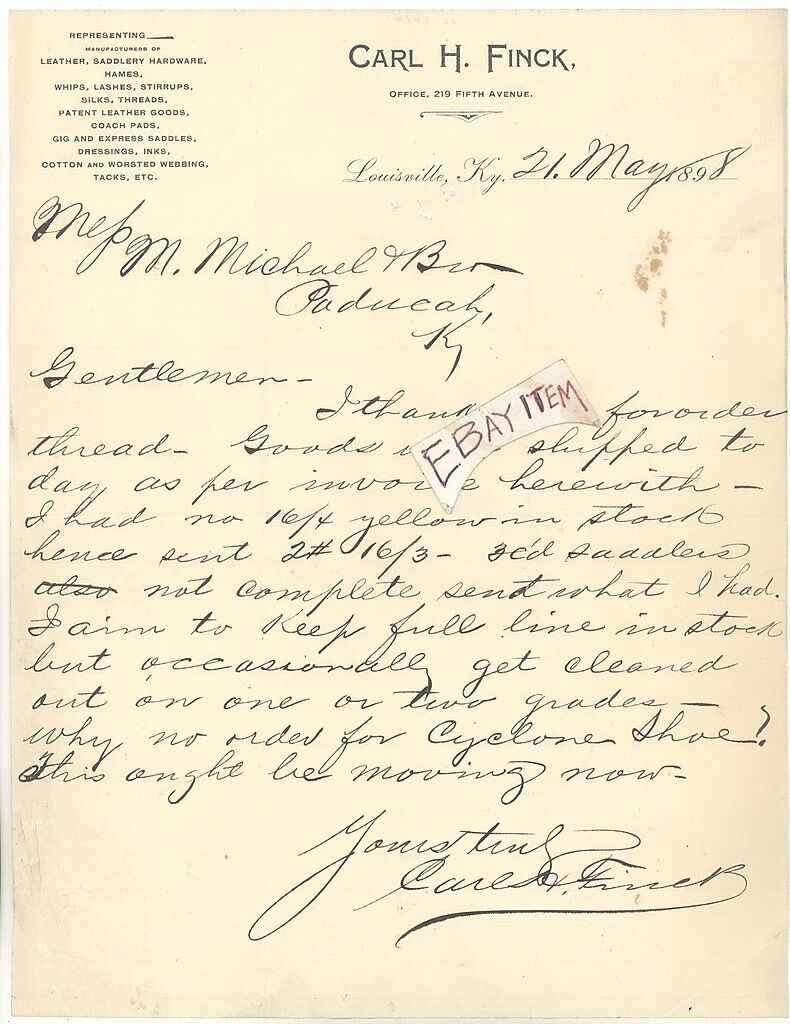 REPRESENTING
MANUFACTURERS OF
LEATHER, SADDLERY HARDWARE,
HAMES,
WHIPS, LASHES, STIRRUPS,
SILKS, THREADS,
PATENT LEATHER GOODS,
COACH PADS,
GIG AND EXPRESS SADDLES,
DRESSINGS, INKS,
COTTON AND WORSTED WEBBING,
TACKS, ETC.
CARL H. FINCK,
OFFICE, 219 FIFTH AVENUE.
Louisville, Ky. 21. May 1898
Mess
M. Michael & Bro
Paducah,
Ky
Gentlemen-
I thank for order
EBAY ITEM
thread- Goods shipped to
day as per invoice herewith-
I had no 16/4 yellow in stock
hence sent 2# 16/3- 3c'd saddlers
also not complete sent what I had.
I aim to keep full line in stock
but occasionally get cleaned
out on one or two grades-
why no order for Cyclone Shoe?
This ought be moving now-
Yours truly
Carl H. Finck